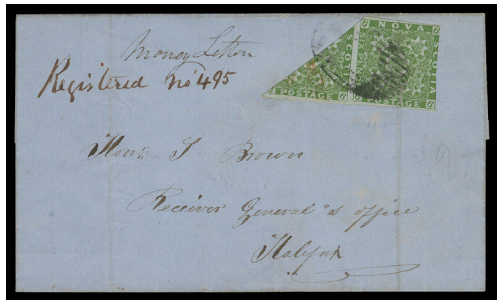 Money Letter
Registered No 495
NOVA
SCOTIA
POSTAGE
POSTAGE
Hon. J Brown
Receiver General's office
Halifax